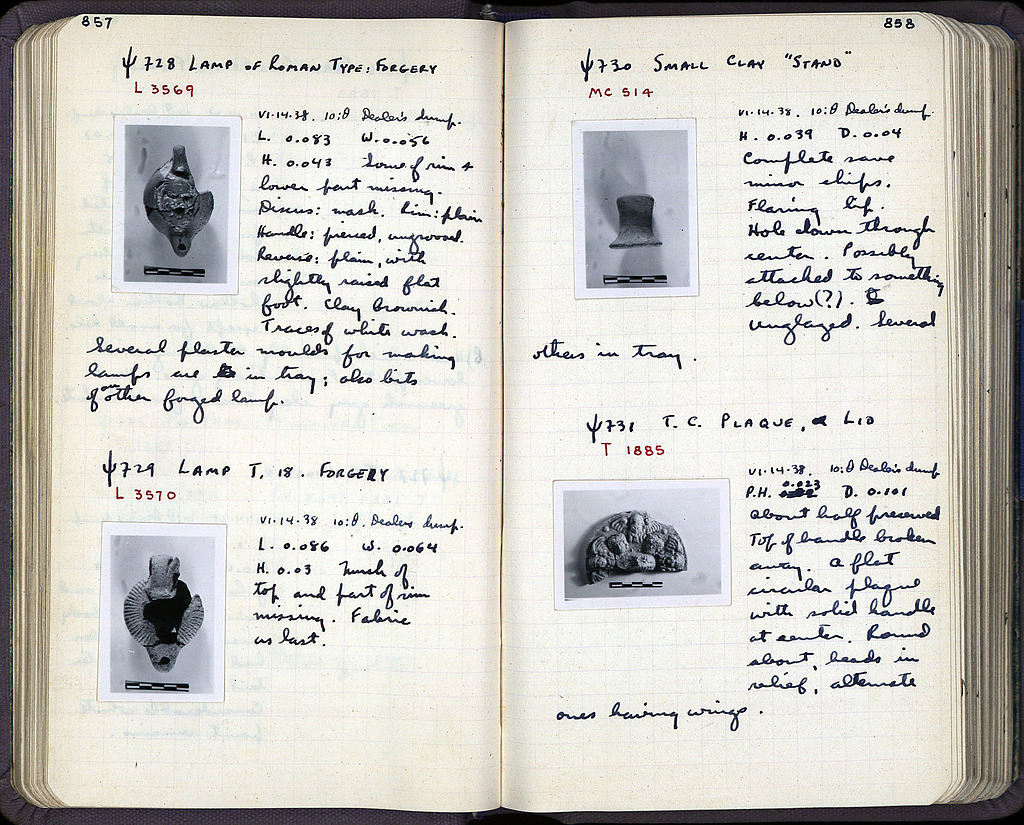 857
ψ728 LAMP OF ROMAN TYPE: FORGERY
L 3569
VI-14-38. 10:Θ Dealer's dump.
L. 0.083 W. 0.056
H. 0.043 Some of rim +
lower part missing.
Discus: mask. Rim: plain
Handle: pierced, ungrooved.
Reverse: plain, with
slightly raised flat
foot. Clay brownish.
Traces of white wash.
Several plaster moulds for making
lamps are in tray; also bits
of an other forged lamp.
ψ729 LAMP T. 18. FORGERY
L 3570
VI-14-38 10:Θ, Dealers dump.
L. 0.086 W. 0.064
H. 0.03 Much of
top and part of rim
missing. Fabric
as last.
858
ψ730 SMALL CLAY "STAND"
MC 514
VI-14-38. 10:Θ Dealer's dump.
H. 0.039 D. 0.04
Complete save
minor chips.
Flaring lip.
Hole down through
center. Possibly
attached to something
below(?).
Unglazed. Several
others in tray.
ψ731 T.C. PLAQUE, LID
T 1885
VI-14-38. 10:Θ Dealer's dump
P.H. 0.023 D. 0.101
About half preserved
Top of handle broken
away. A flat
circular plaque
with solid handle
at center. Round
about, heads in
relief, alternate
ones having wings.